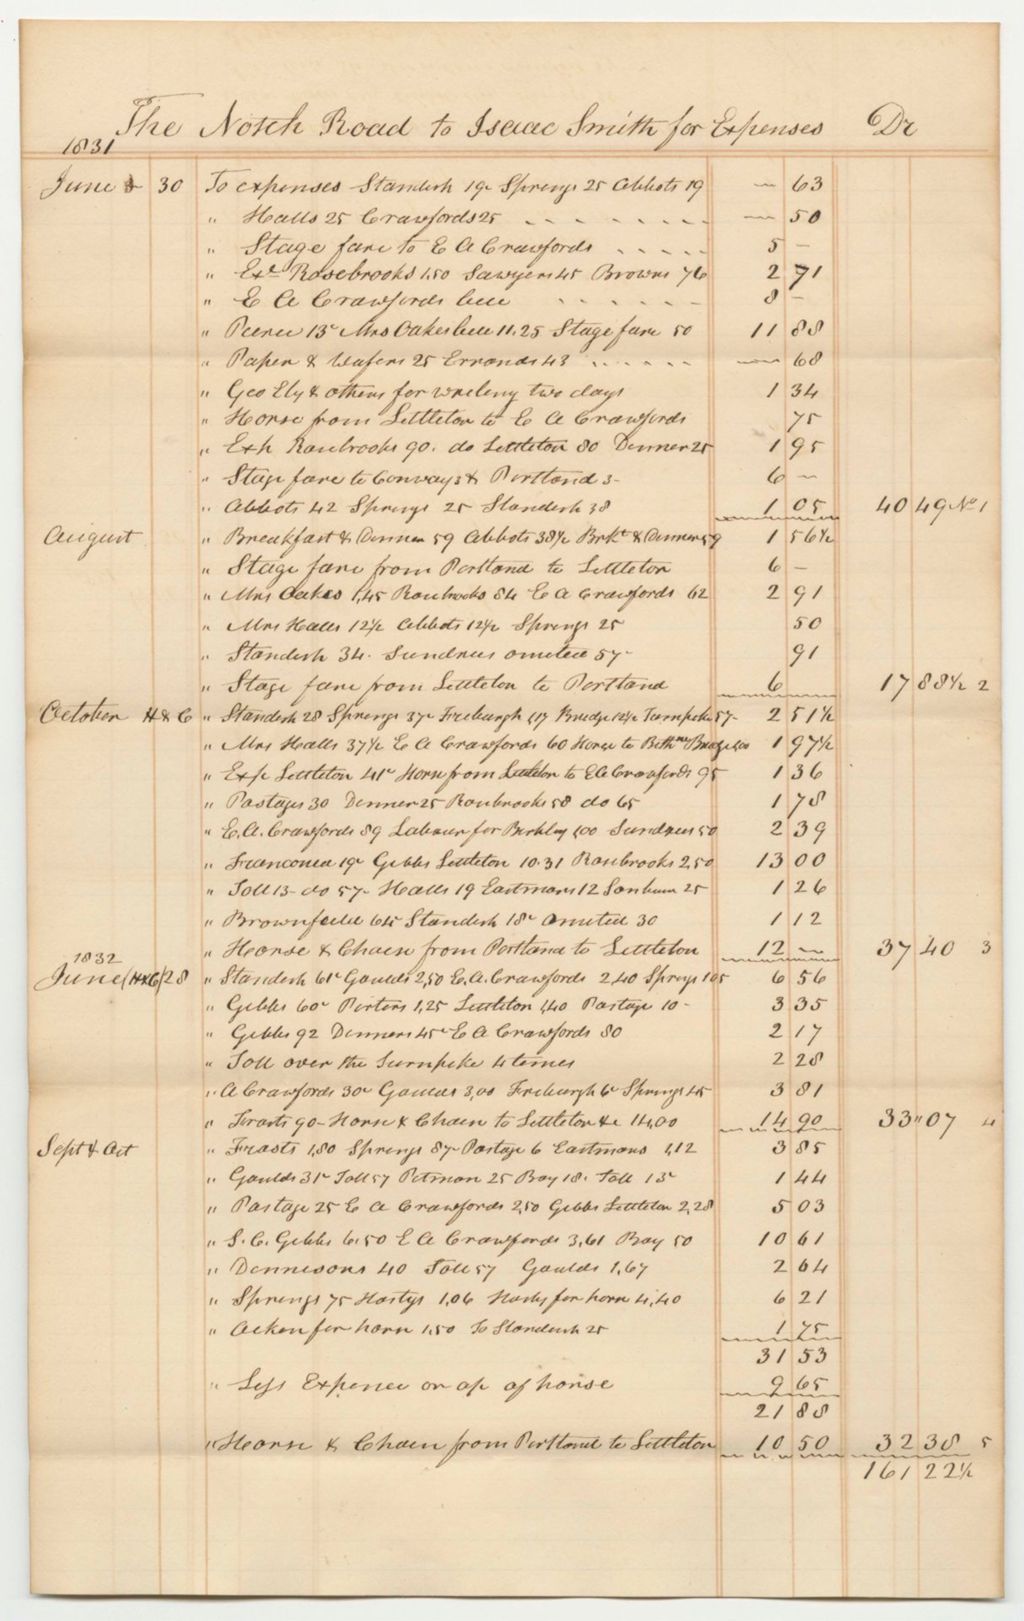 The Notch Road to Isaac Smith for Expenses Dr
1831
June & 30 To expenses Standish 19c Springs 25 Abbots 19 — 63
" Halls 25 Crawfords 25 - - - - - - - — 50
" Stage fare to E A Crawfords - - - - - 5 —
" Exe Rosebrooks 1,50 Sawyers 45 Browns 76 2 71
" E A Crawfords bill - - - - - - 8 —
" Peirce 13c Mrs Oakes bill 11.25 Stage fare 50 11 88
" Paper & Wafers 25 Errands 43 - - - - - — 68
" Geo Ely & others for two days 1 34
" Horse from Littleton to E A Crawfords 75
" Exp Rosebrooks 90. do Littleton 80 Dinner 25 1 95
" Stage fare to Conway 3 & Portland 3- 6 —
" Abbots 42 Springs 25 Standish 38 1 05 40 49 No 1
August " Breakfast & Dinner 59 Abbots 38½ Brkt & Dinner 59 1 56½
" Stage fare from Portland to Littleton 6 —
" Mrs Oakes 1,45 Rosebrooks 84 E A Crawfords 62 2 91
" Mrs Halls 12½ Abbots 12½ Springs 25 50
" Standish 34. Sundries omitted 57- 91
" Stage fare from Littleton to Portland 6 17 88½ 2
October H & C " Standish 28 Springs 37c Freiburgh 1,17 Bridge 12½ Turnpike 57- 2 51½
" Mrs Halls 37½ E A Crawfords 60 Horse to Bethm Bridge 1,00 1 97½
" Exp Littleton 41c Horse from Littleton to EA Crawfords 95 1 36
" Postages 30 Dinner 25 Rosebrooks 58 do 65 1 78
" E. A. Crawfords 89 Labour for Berkley 1,00 Sundries 50 2 39
" Franconia 19c Gibbs Littleton 10.31 Rosebrooks 2,50 13 00
" Toll 13- do 57- Halls 19 Eastmans 12 Sanburn 25 1 26
" Brownfield 64c Standish 18c Omitted 30 1 12
" Horse & Chaise from Portland to Littleton 12 — 37 40 3
1832
June (H&C) 28 " Standish 61c Goulds 2,50 E. A. Crawfords 2,40 Springs 105 6 56
" Gibbs 60c Porters 1,25 Littleton 1,40 Postage 10- 3 35
" Gibbs 92 Dinners 45c E A Crawfords 80 2 17
" Toll over the Turnpike 4 times 2 28
" A Crawfords 30c Goulds 3,00 Freiburgh 6c Springs 45 3 81
" Frosts 90- Horse & Chaise to Littleton &c 14,00 14 90 33 " 07 4
Sept & Oct " Frosts 1,80 Springs 87- Postage 6 Eastmans 1,12 3 85
" Goulds 31c Toll 57 Pitman 25 Boy 18. Toll 13c 1 44
" Postage 25 E A Crawfords 2,50 Gibbs Littleton 2,28 5 03
" S. C. Gibbs 6.50 E A Crawfords 3,61 Boy 50 10 61
" Dennisons 40 Toll 57 Goulds 1,67 2 64
" Springs 75 Hastys 1,06 for horse 4,40 6 21
" for horse 1,50 To Standish 25 1 75
31 53
" Less Expence on a/c of horse 9 65
21 88
" Horse & Chaise from Portland to Littleton 10 50 32 38 5
161 22½